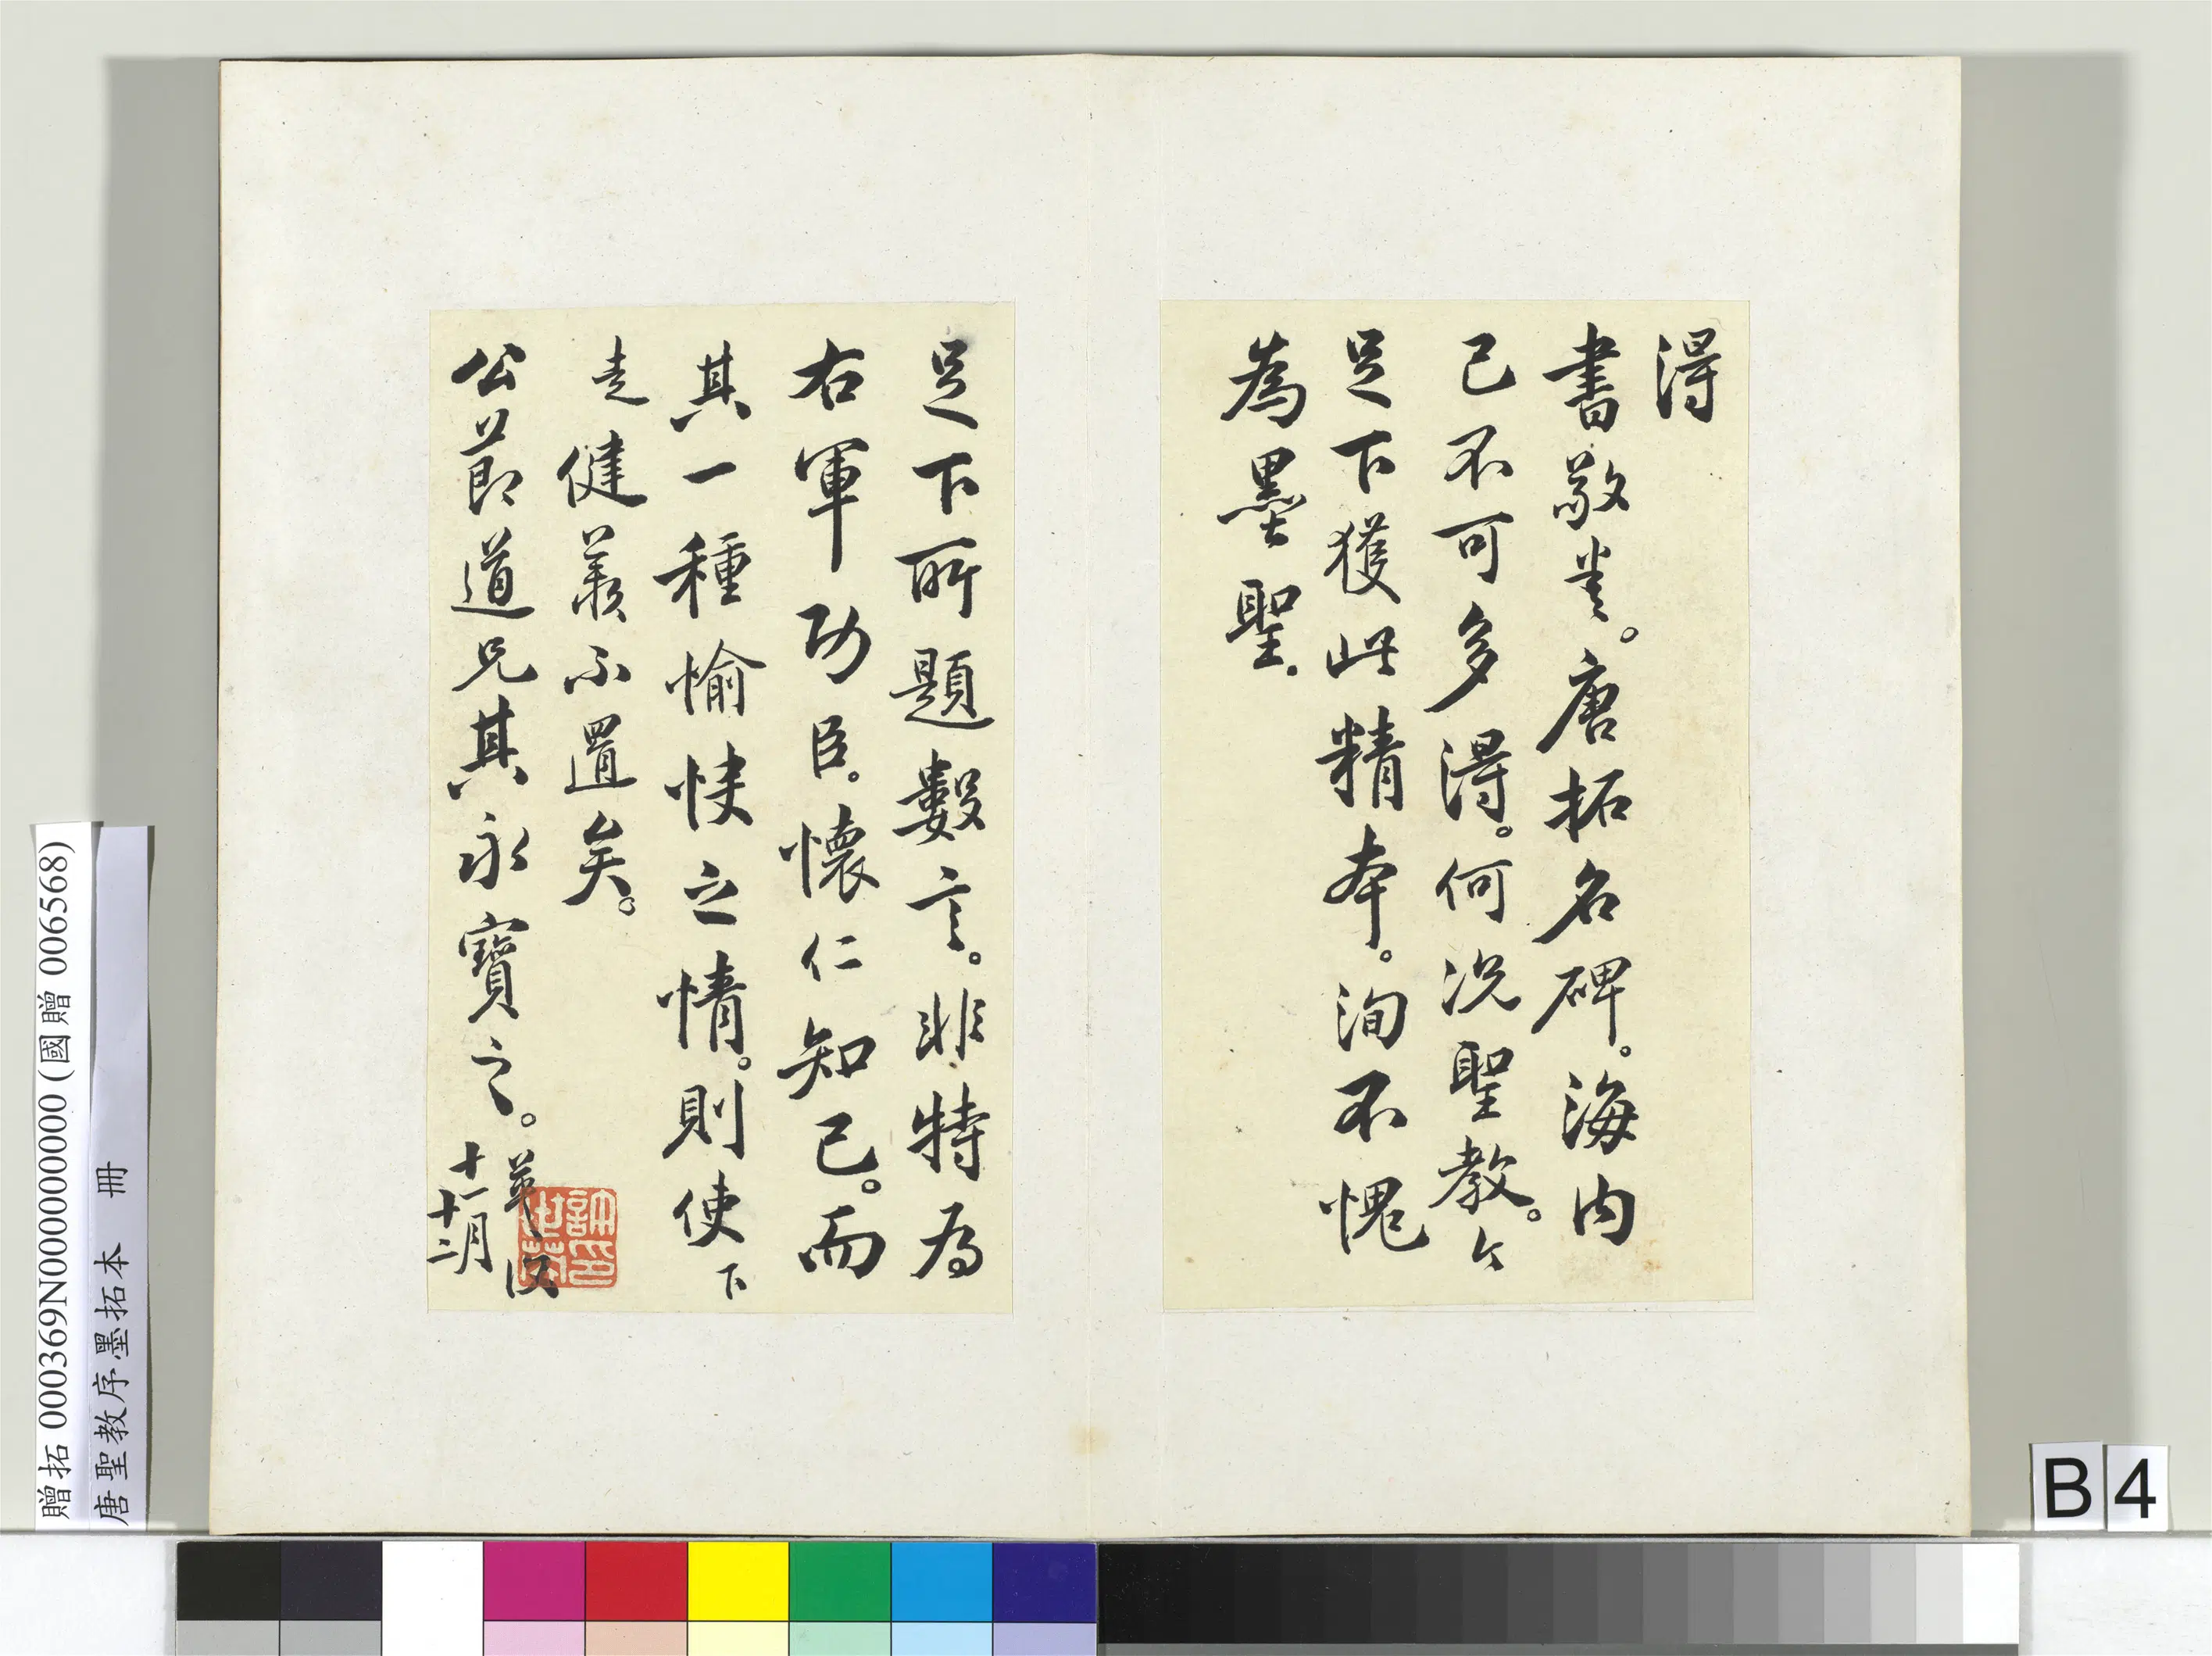 得
書敬悉。唐拓名碑。海内
已不可多得。何況聖教。今
足下獲此精本。洵不愧
為墨聖.
足下所題數言。非特為
右軍功臣。懷仁知己。而
其一種愉快之情。則使下
走健羨不置矣。
公節道兄其永寶之。
世英 頓
十一月
十二
贈拓 000369N000000000 (國贈 006568)
唐聖教序墨拓本 冊
B 4